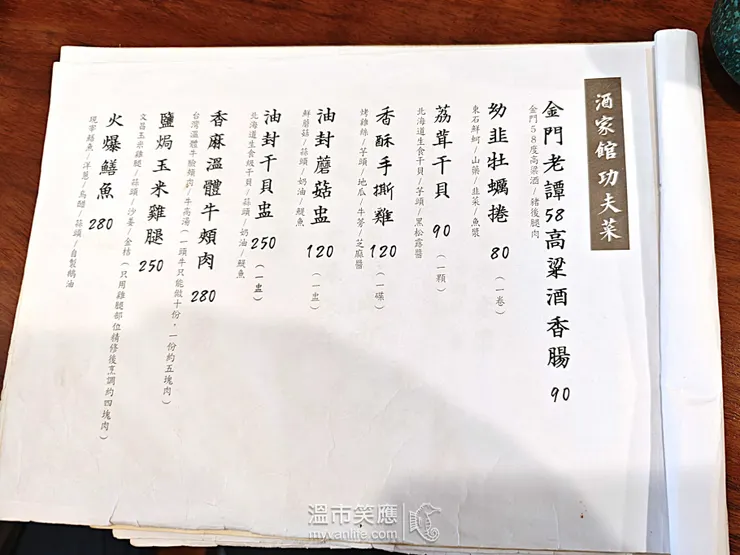 酒家館功夫菜
金門老譚58高粱酒香腸 90
金門58度高粱酒/豬後腿肉
幼韭牡蠣捲 80 (一卷)
東石鮮蚵/山藥/韭菜/魚漿
荔茸干貝 90 (一顆)
北海道生食干貝/芋頭/黑松露醬
香酥手撕雞 120 (一碟)
烤雞絲/芋頭/地瓜/牛蒡/芝麻醬
油封蘑菇盅 120 (一盅)
鮮蘑菇/蒜頭/奶油/鯷魚
油封干貝盅 250 (一盅)
北海道生食級干貝/蒜頭/奶油/鯷魚
香麻溫體牛頰肉 280
台灣溫體牛臉頰肉/牛高湯(一頭牛只能做十份,一份約五塊肉)
鹽焗玉米雞腿 250
文昌玉米雞腿/蒜頭/沙姜/金桔(只用雞腿部位精修後烹調約四塊肉)
火爆鱔魚 280
現宰鱔魚/洋蔥/烏醋/蒜頭/自製鵝油
溫市笑應
myvanlife.com